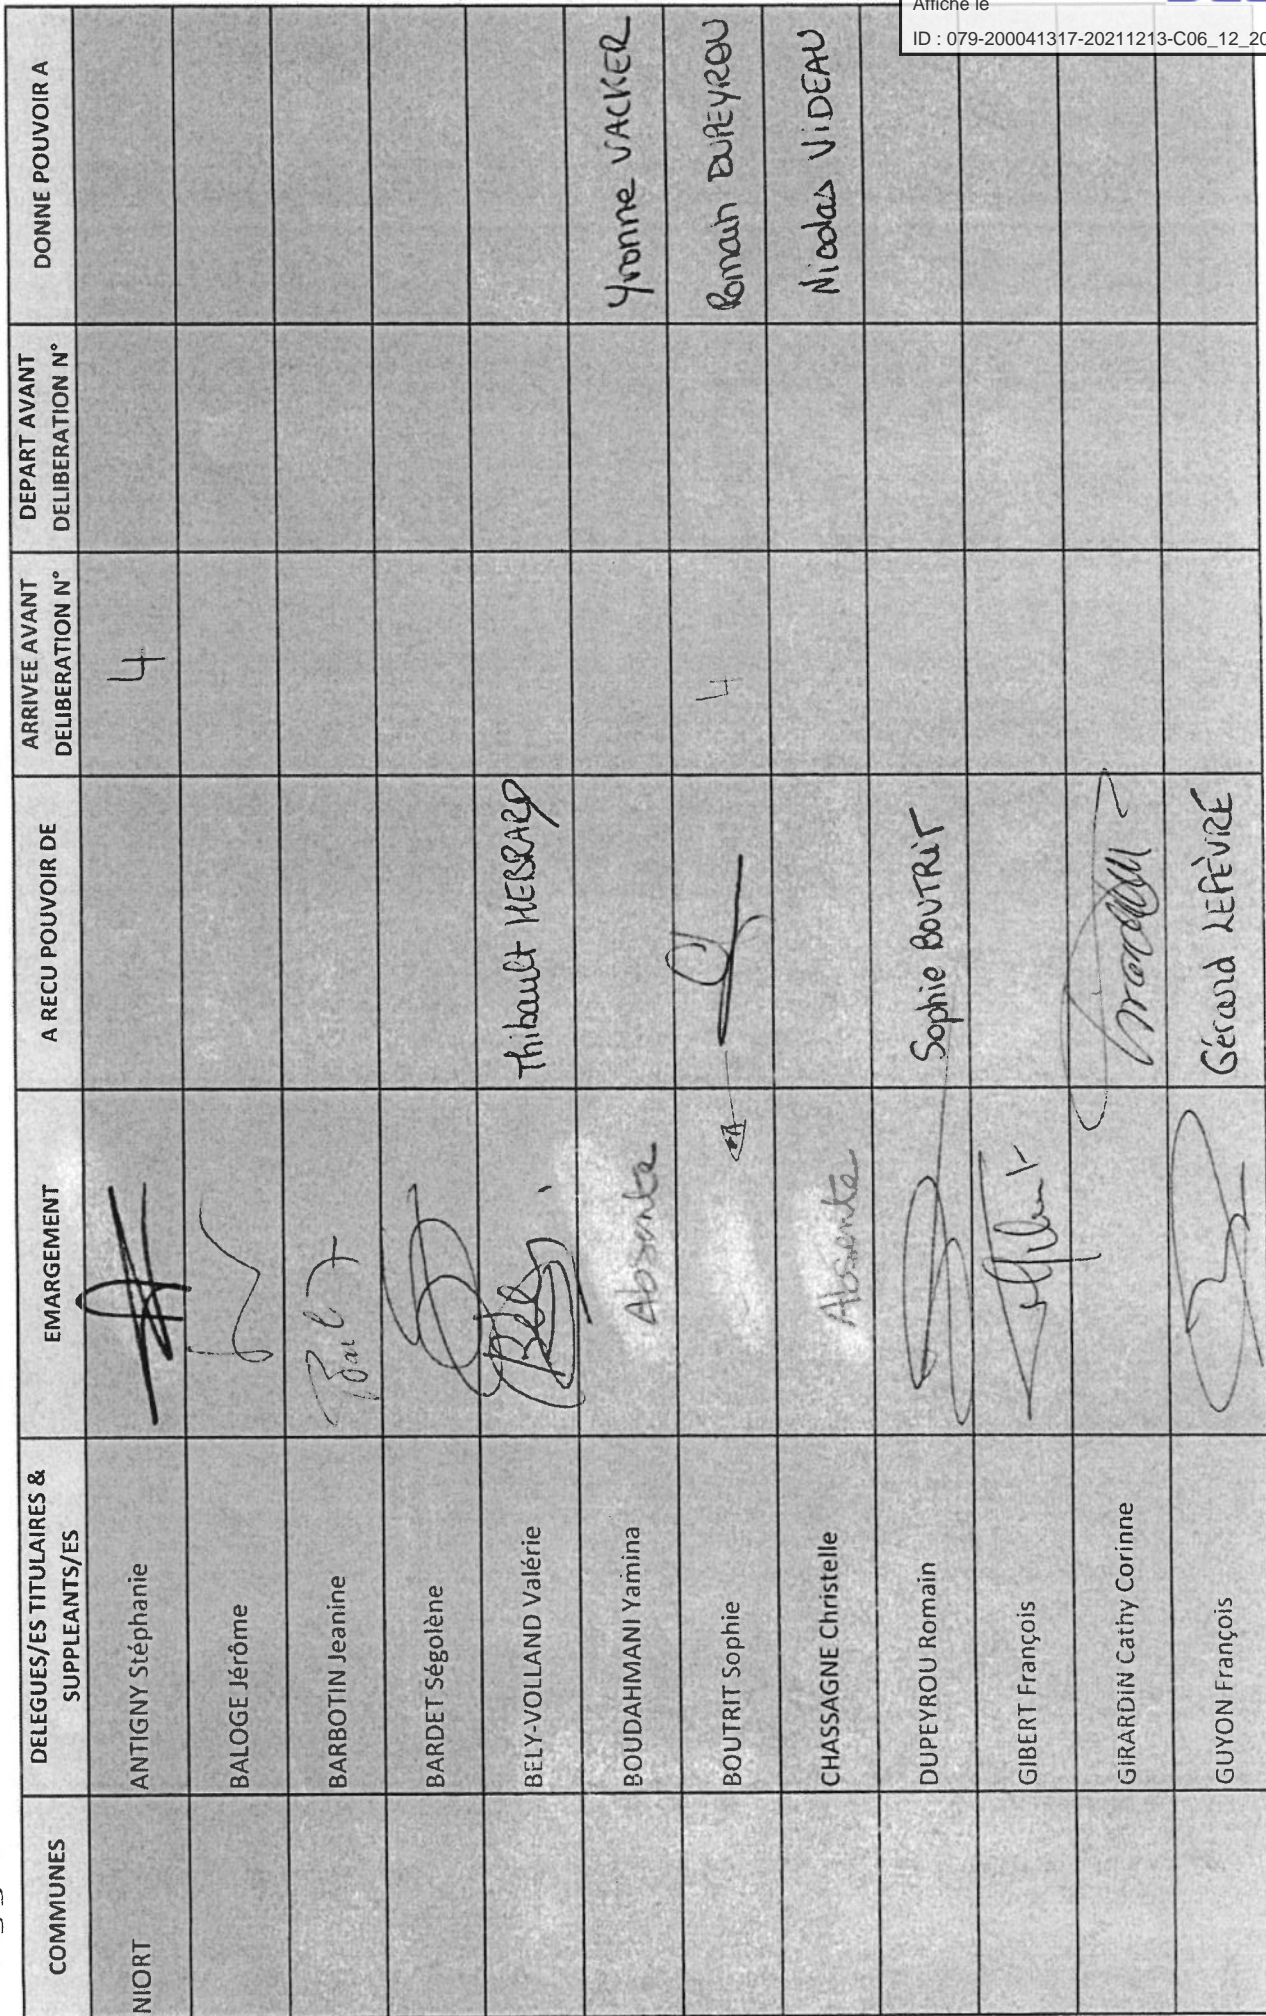 Affiché le
ID : 079-200041317-20211213-C06_12_20
COMMUNES
DELEGUES/ES TITULAIRES &
SUPPLEANTS/ES
EMARGEMENT
A RECU POUVOIR DE
ARRIVEE AVANT
DELIBERATION N°
DEPART AVANT
DELIBERATION N°
DONNE POUVOIR A
NIORT
ANTIGNY Stéphanie
4
BALOGE Jérôme
BARBOTIN Jeanine
BARDET Ségolène
BELY-VOLLAND Valérie
Thibault HEBRARD
BOUDAHMANI Yamina
Absente
Yvonne VACKER
BOUTRIT Sophie
4
Romain DUPEYROU
CHASSAGNE Christelle
Absente
Nicolas VIDEAU
DUPEYROU Romain
Sophie BOUTRIT
GIBERT François
GIRARDIN Cathy Corinne
GUYON François
Gérard LEFÈVRE